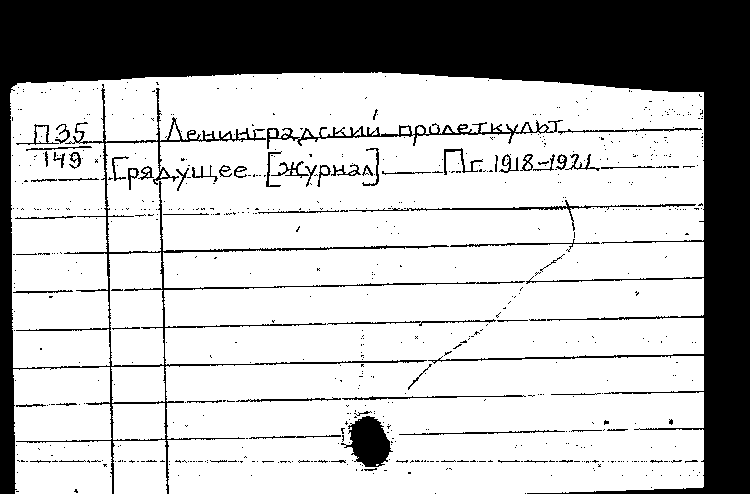 П35
149
Ленинградский пролеткульт.
Грядущее [журнал]. Пг. 1918-1921.